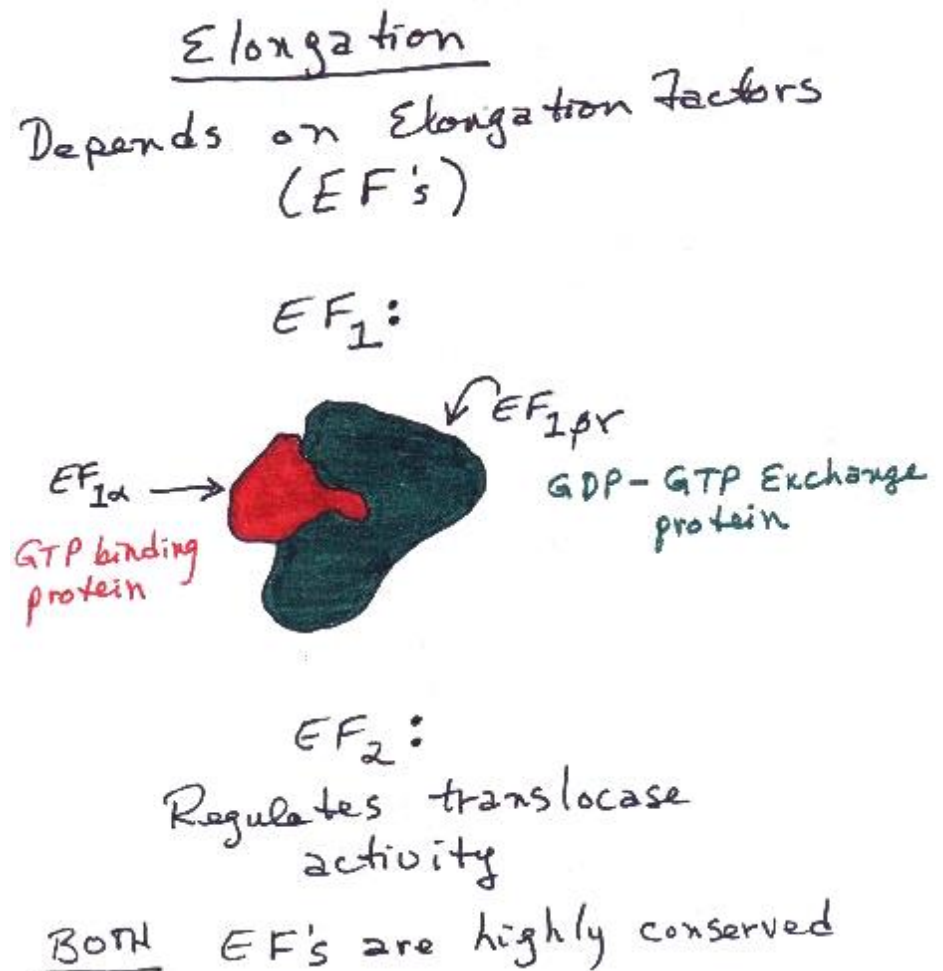 Elongation
Depends on Elongation Factors
(EF's)
EF₁:
EF₁βγ
EF₁α
GDP-GTP Exchange
protein
GTP binding
protein
EF₂:
Regulates translocase
activity
BOTH EF's are highly conserved